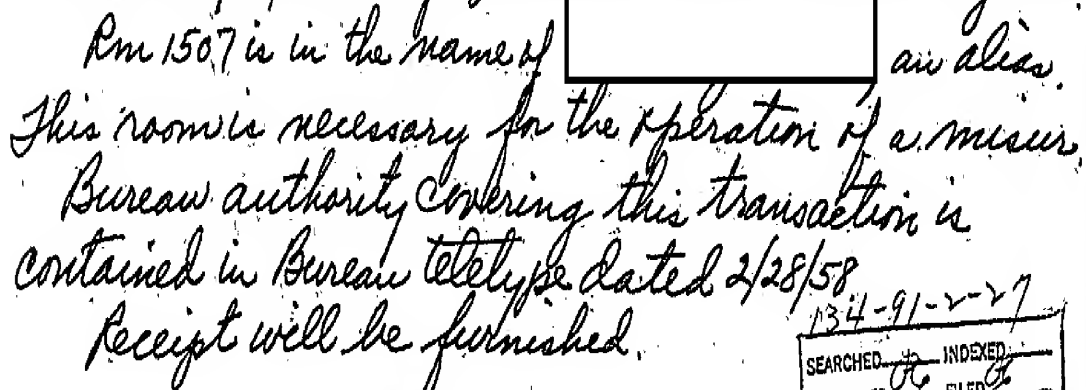 Rm 1507 is in the name of an alias.
This room is necessary for the operation of a misur.
Bureau authority covering this transaction is
contained in Bureau teletype dated 2/28/58
Receipt will be furnished.
134-91-2-27
SEARCHED INDEXED
FILED